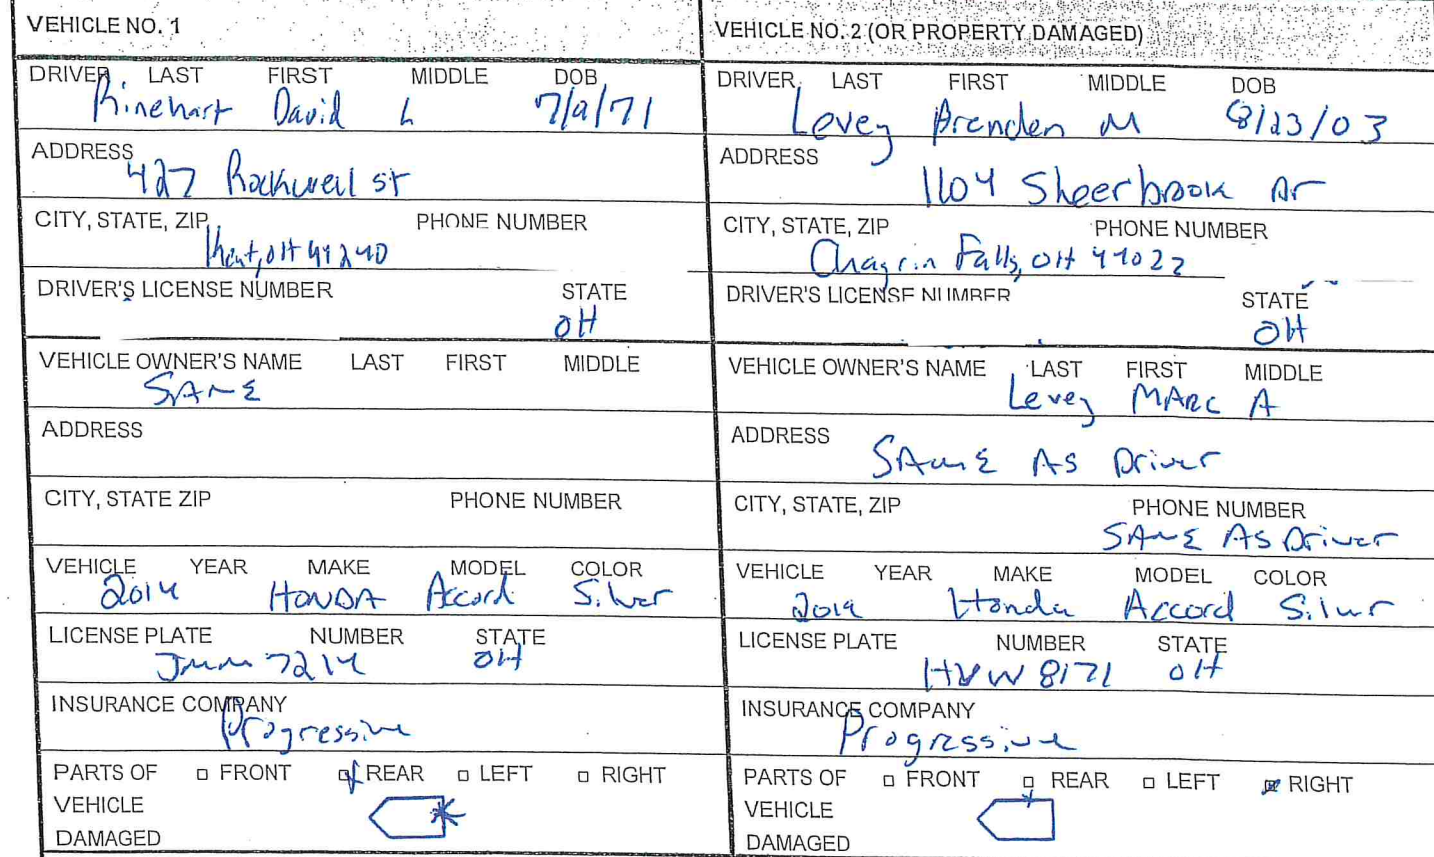 VEHICLE NO. 1
DRIVER LAST FIRST MIDDLE DOB
Rinehart David L 7/9/71
ADDRESS
427 Rockwell St
CITY, STATE, ZIP PHONE NUMBER
Kent, OH 44240
DRIVER'S LICENSE NUMBER STATE
OH
VEHICLE OWNER'S NAME LAST FIRST MIDDLE
SAME
ADDRESS
CITY, STATE ZIP PHONE NUMBER
VEHICLE YEAR MAKE MODEL COLOR
2014 HONDA Accord Silver
LICENSE PLATE NUMBER STATE
JMM 7214 OH
INSURANCE COMPANY
Progressive
PARTS OF VEHICLE DAMAGED FRONT REAR LEFT RIGHT
VEHICLE NO. 2 (OR PROPERTY DAMAGED)
DRIVER LAST FIRST MIDDLE DOB
Levey Brenden M 8/23/03
ADDRESS
1104 Sheerbrook Dr
CITY, STATE, ZIP PHONE NUMBER
Chagrin Falls, OH 44022
DRIVER'S LICENSE NUMBER STATE
OH
VEHICLE OWNER'S NAME LAST FIRST MIDDLE
Levey MARC A
ADDRESS
SAME AS Driver
CITY, STATE, ZIP PHONE NUMBER
SAME AS Driver
VEHICLE YEAR MAKE MODEL COLOR
Honda Accord Silver
LICENSE PLATE NUMBER STATE
HVW 8171 OH
INSURANCE COMPANY
Progressive
PARTS OF VEHICLE DAMAGED FRONT REAR LEFT RIGHT